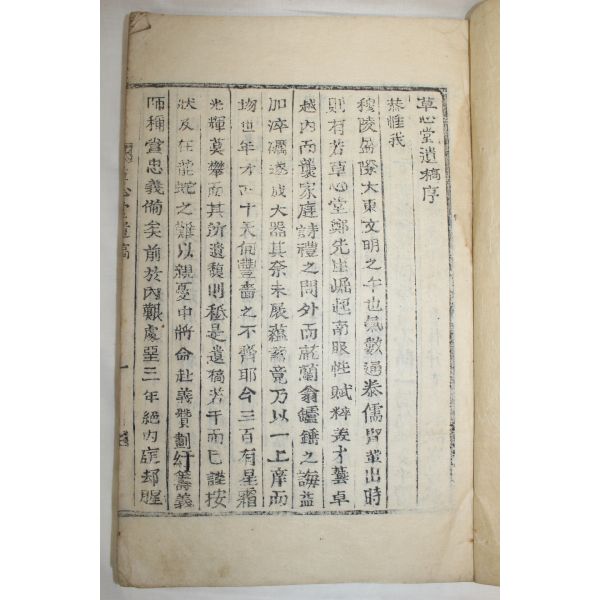 草心堂遺稿序
恭惟我
穆陵盛際大東文明之午也氣數通泰儒賢輩出時
則有若草心堂鄭先生崛起南服性賦粹美才藝卓
越內而襲家庭詩禮之聞外而蘭翁鑪錘之誨益
加淬礪遂成大器其奈未展蘊蓄竟乃以一上庠而
年才四十天何豐嗇之不齊耶今三百有星霜
光輝莫攀而其所遺馥則秪是遺稿若干而已謹按
狀及在龍蛇之難以親憂中將命赴義贊劃籌義
師稱當忠義備矣前於內艱處堊三年絕內房却腥
草心堂遺稿
一